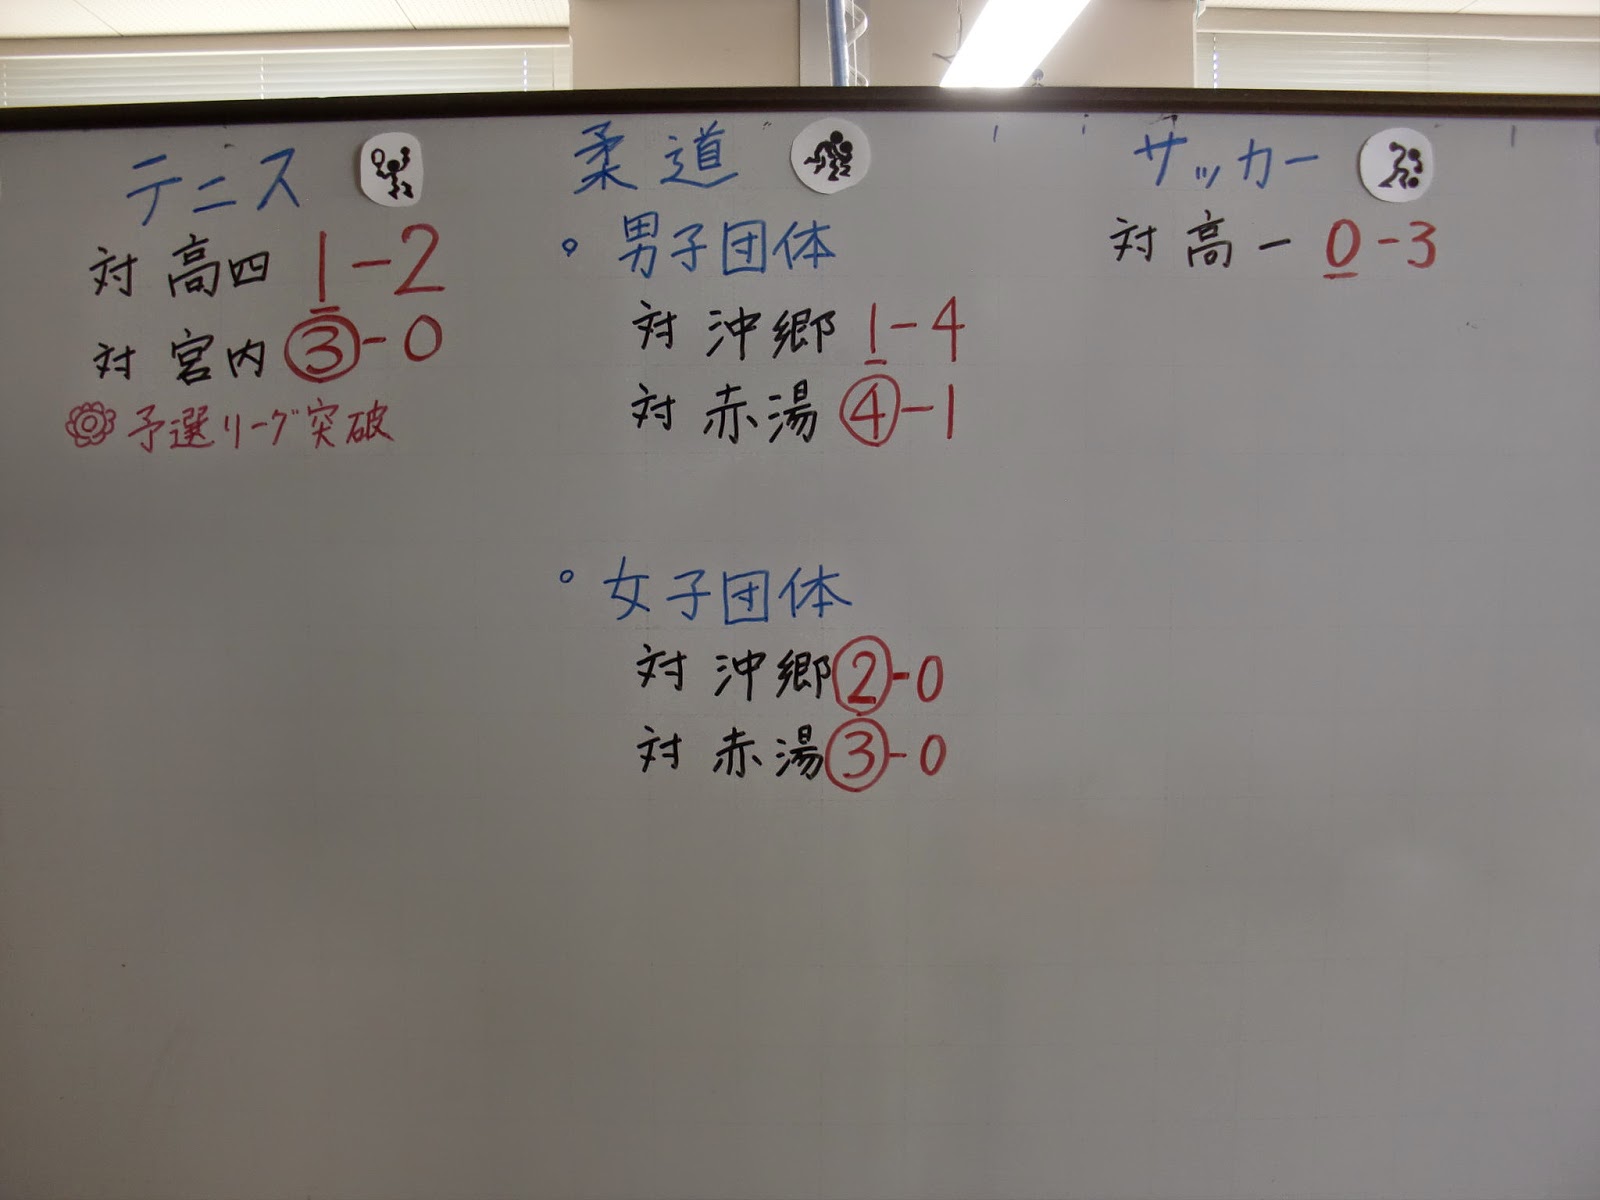 テニス
対 高四 1-2
対 宮内 ③-0
予選リーグ突破
柔道
。男子団体
対 沖郷 1-4
対 赤湯 ④-1
。女子団体
対 沖郷 ②-0
対 赤湯 ③-0
サッカー
対 高一 0-3